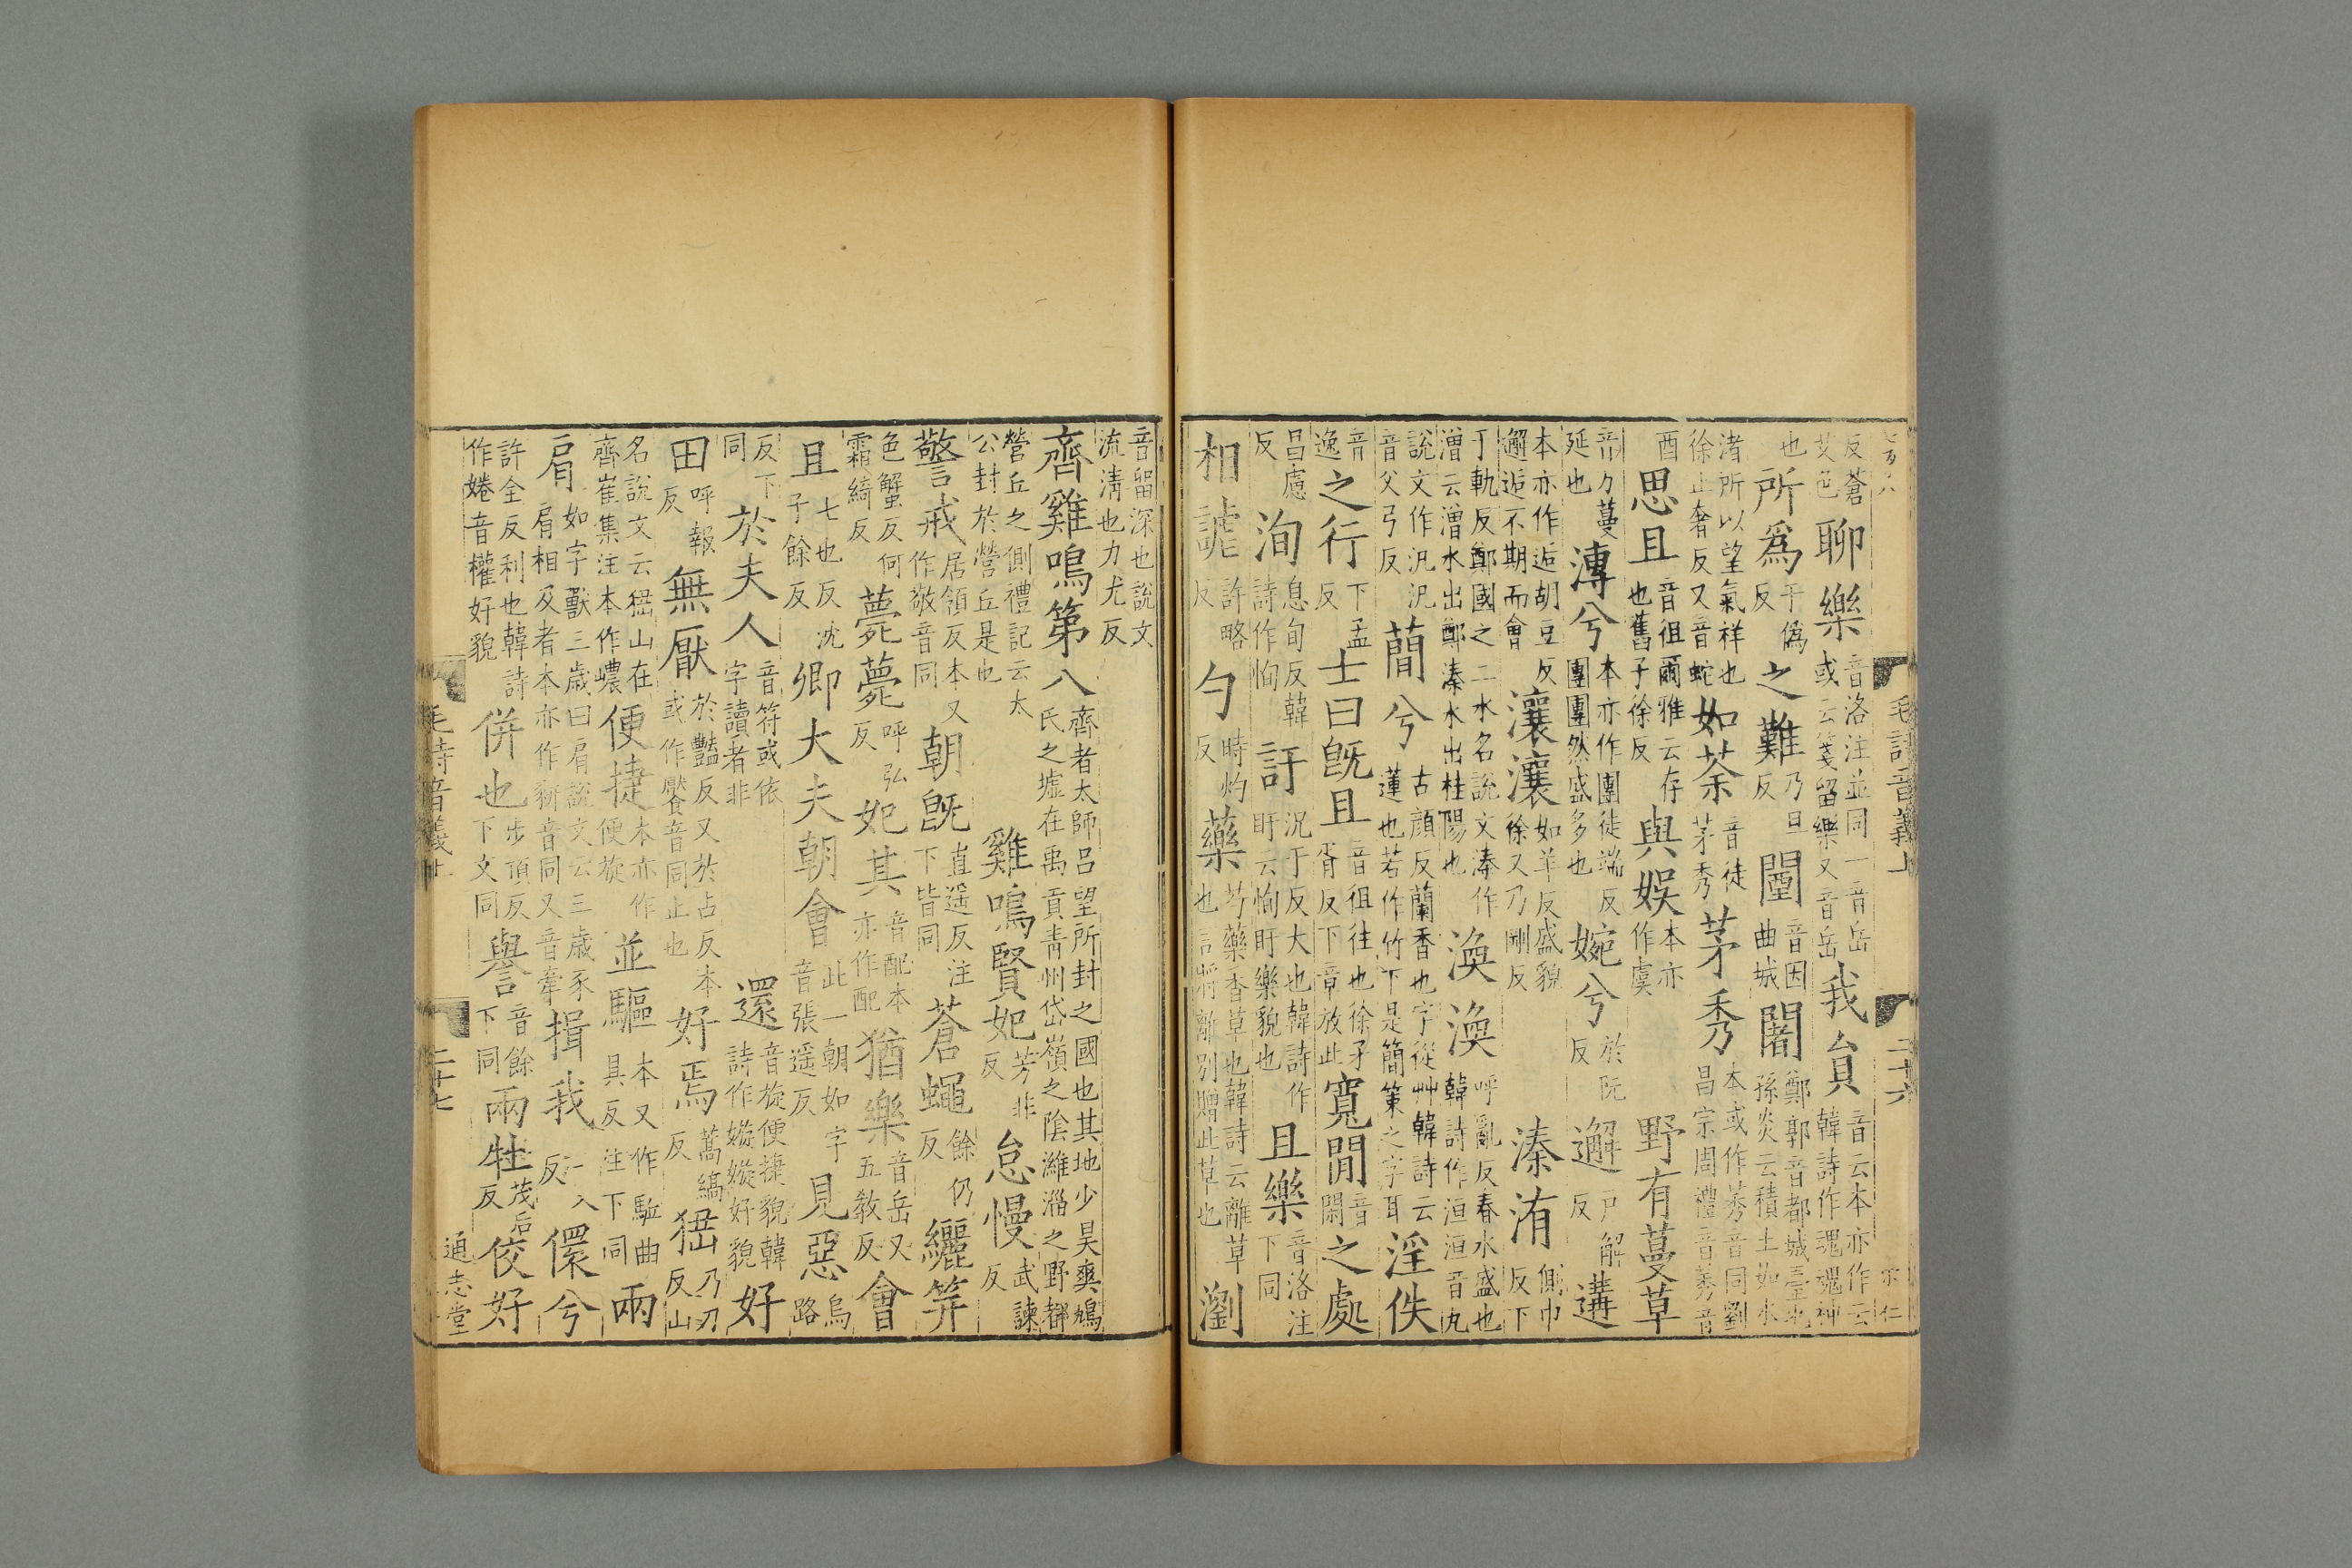 反蒼艾色聊樂音洛注並同一音岳或云箋留樂又音岳我員音云本亦作云韓詩作魂魂神
也所爲于僞反之難乃旦反闉音因曲城闍鄭郭音都城臺也孫炎云積土如水
渚所以望氣祥也徐止奢反又音蛇如荼音徒茅秀茅秀本或作莠音同劉昌宗周禮音莠音
酉思且音徂爾雅云存也舊子徐反與娛本亦作虞野有蔓草
音万蔓延也漙兮本亦作團徒端反團團然盛多也婉兮於阮反邂戶解反遘
本亦作逅胡豆反邂逅不期而會瀼瀼如羊反盛貌徐又乃剛反溱洧側巾反下
于軌反鄭國之二水名說文溱作潧云潧水出鄭溱水出桂陽也渙渙呼亂反春水盛也韓詩作洹洹音丸
說文作汎汎音父弓反蕑兮古顏反蘭香也字從艸韓詩云蓮也若作竹下是簡策之字耳淫佚
音逸之行下孟反士曰既且音徂往也徐子胥反下章放此寬閒音閑之處
昌慮反洵息旬反韓詩作恂訏況于反大也韓詩作盱云恂盱樂貌也且樂音洛注下同
相謔許略反勺時灼反藥芍藥香草也韓詩云離草也言將離別贈此草也瀏
毛詩音義上
二十六
音留深也說文流清也力尤反
齊雞鳴第八齊者太師呂望所封之國也其地少昊爽鳩氏之墟在禹貢青州岱嶺之陰濰淄之野都
營丘之側禮記云太公封於營丘是也雞鳴賢妃芳非反怠慢武諫反
警戒居領反本又作敬音同朝既直遥反注下皆同蒼蠅餘仍反纚笄
色蟹反何霜綺反薨薨呼弘反妃其音配本亦作配猶樂音岳又五教反會
且七也反沈子餘反卿大夫朝會此一朝如字音張遥反見惡烏路
反下同於夫人音符或依字讀者非還音旋便捷貌韓詩作嫙嫙好貌好
田呼報反無厭於豔反又於占反本或作饜音同止也好焉蒿縞反峱乃刃反山
名說文云峱山在齊崔集注本作嶩便捷本亦作便旋並驅本又作駈曲具反注下同兩
肩如字獸三歲曰肩說文云三歲豕肩相及者本亦作豣音同又音牽揖我一入反儇兮
許全反利也韓詩作婘音權好貌併也步頂反下文同譽音餘下同兩牡茂后反佼好
毛詩音義上
二十七
通志堂